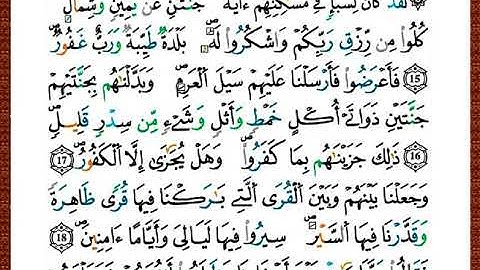 لَقَدْ كَانَ لِسَبَإٍ فِي مَسَٰكِنِهِمْ ءَايَةٌ جَنَّتَٰنِ عَنْ يَمِينٍ وَشِمَالٍ
كُلُوا مِن رِّزْقِ رَبِّكُمْ وَاشْكُرُوا لَهُ بَلْدَةٌ طَيِّبَةٌ وَرَبٌّ غَفُورٌ
15 فَأَعْرَضُوا فَأَرْسَلْنَا عَلَيْهِمْ سَيْلَ الْعَرِمِ وَبَدَّلْنَٰهُم بِجَنَّتَيْهِمْ
جَنَّتَيْنِ ذَوَاتَيْ أُكْلٍ خَمْطٍ وَأَثْلٍ وَشَيْءٍ مِّن سِدْرٍ قَلِيلٍ
16 ذَٰلِكَ جَزَيْنَٰهُم بِمَا كَفَرُوا وَهَلْ يُجَٰزَىٰ إِلَّا الْكَفُورُ 17
وَجَعَلْنَا بَيْنَهُمْ وَبَيْنَ الْقُرَى الَّتِي بَٰرَكْنَا فِيهَا قُرًى ظَٰهِرَةً
وَقَدَّرْنَا فِيهَا السَّيْرَ سِيرُوا فِيهَا لَيَالِيَ وَأَيَّامًا ءَامِنِينَ 18